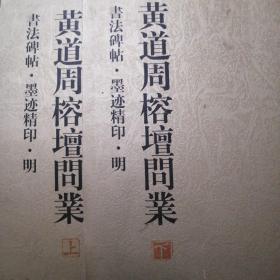 黄道周榕壇問業
書法碑帖·墨迹精印·明
下
黄道周榕壇問業
書法碑帖·墨迹精印·明
上